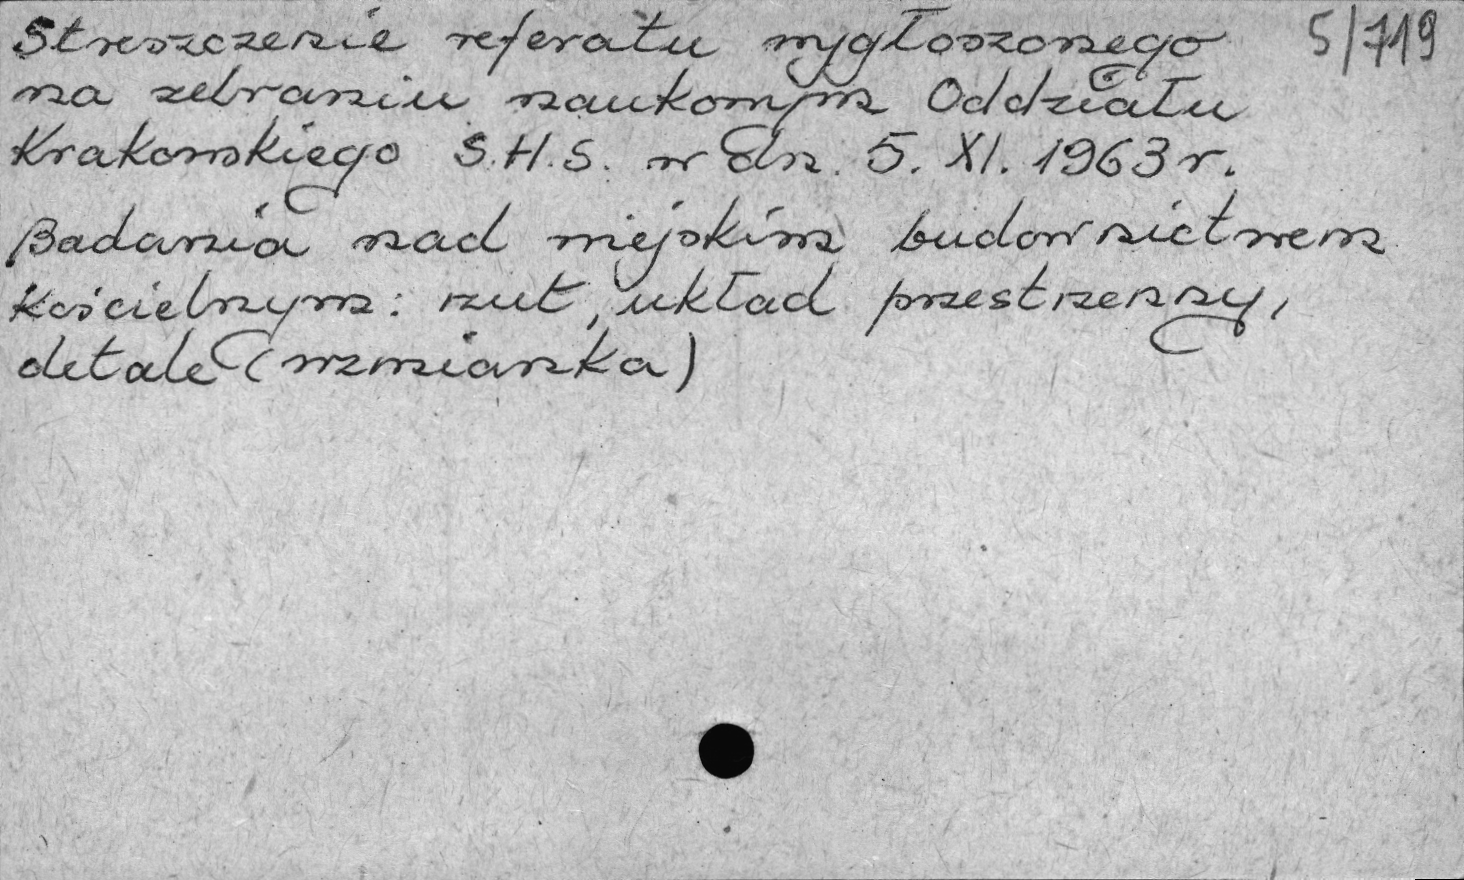 Streszczenie referatu wygłoszonego 5/719
na zebraniu naukowym Oddziału
Krakowskiego S.H.S. w dn. 5. XI. 1963 r.
Badania nad miejskim budownictwem
kościelnym: rzut, układ przestrzenny,
detale (wzmianka)